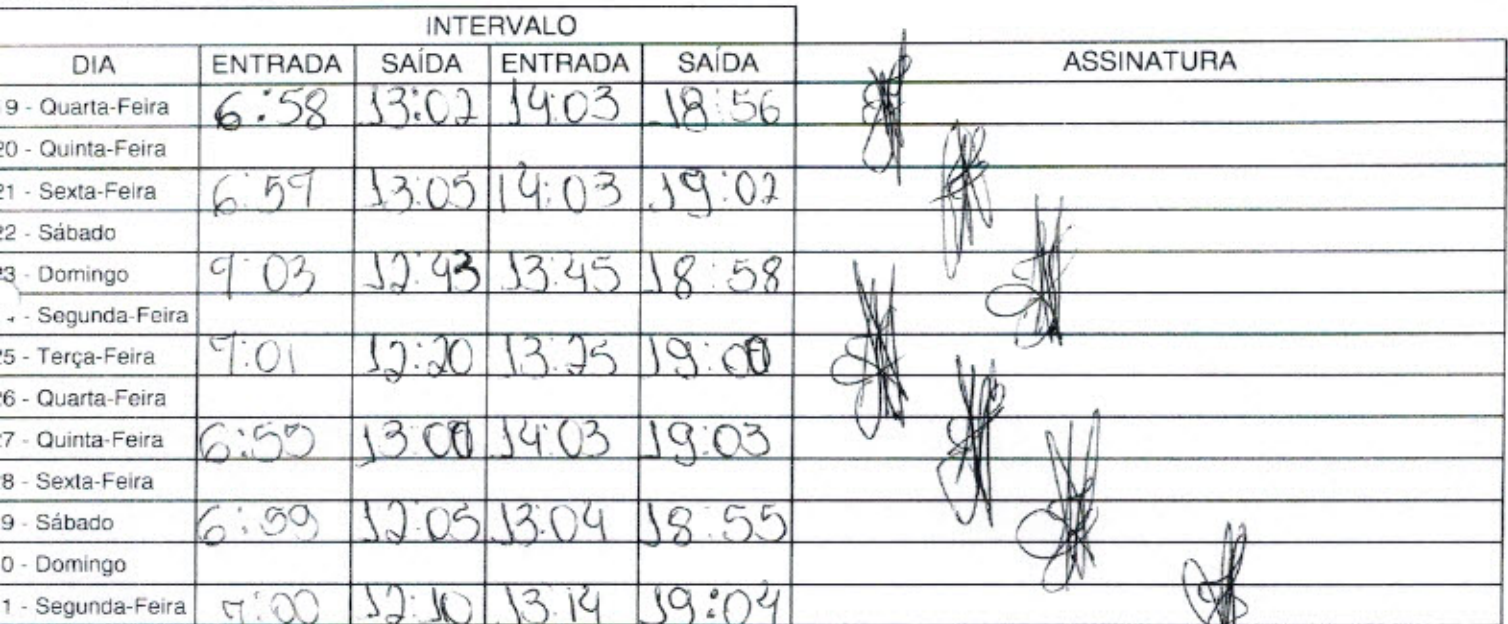 INTERVALO
DIA ENTRADA SAÍDA ENTRADA SAÍDA ASSINATURA
9 - Quarta-Feira 6:58 13:02 14:03 18:56
20 - Quinta-Feira
21 - Sexta-Feira 6:59 13:05 14:03 19:02
22 - Sábado
23 - Domingo 7:03 12:43 13:45 18:58
- Segunda-Feira
25 - Terça-Feira 7:01 12:20 13:25 19:00
26 - Quarta-Feira
27 - Quinta-Feira 13:00 14:03 19:03
8 - Sexta-Feira
9 - Sábado 6:59 12:05 13:04 18:55
0 - Domingo
1 - Segunda-Feira 7:00 12:10 13:14 19:04